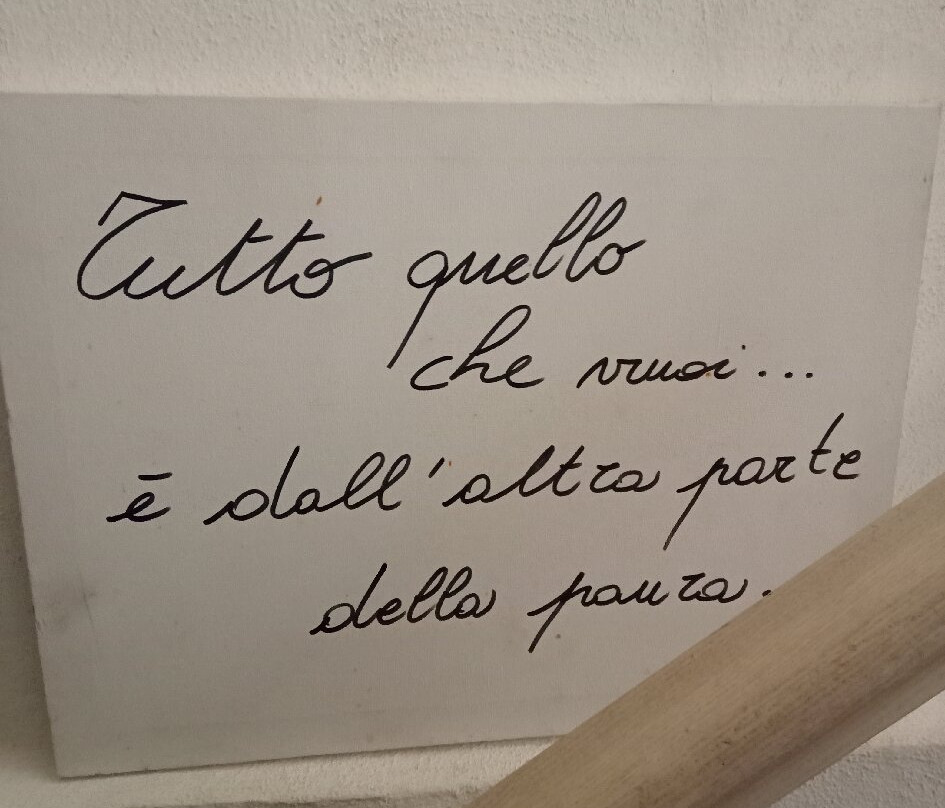 Tutto quello
che vuoi...
è dall'altra parte
della paura.